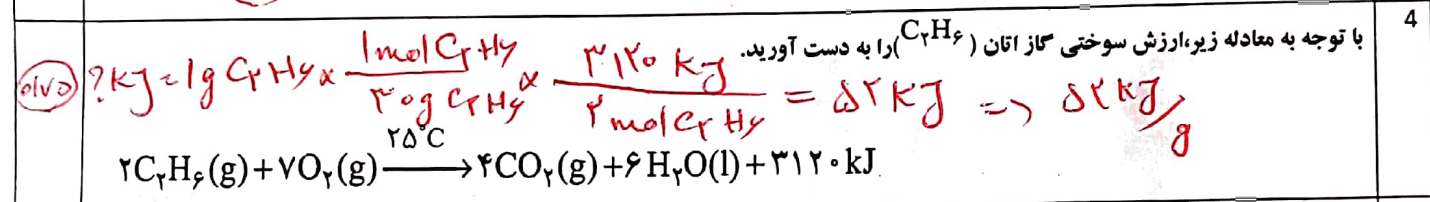 4
با توجه به معادله زیر،ارزش سوختی گاز اتان (C₂H₆)را به دست آورید.
?kJ = 1g C₂H₆ × 1mol C₂H₆ / ۳۰g C₂H₆ × ۳۱۲۰ kJ / ۲ mol C₂H₆ = ۵۲ kJ => ۵۲ kJ/g
۲C₂H₆(g)+۷O₂(g) ۲۵°C⟶ ۴CO₂(g)+۶H₂O(l)+۳۱۲۰kJ